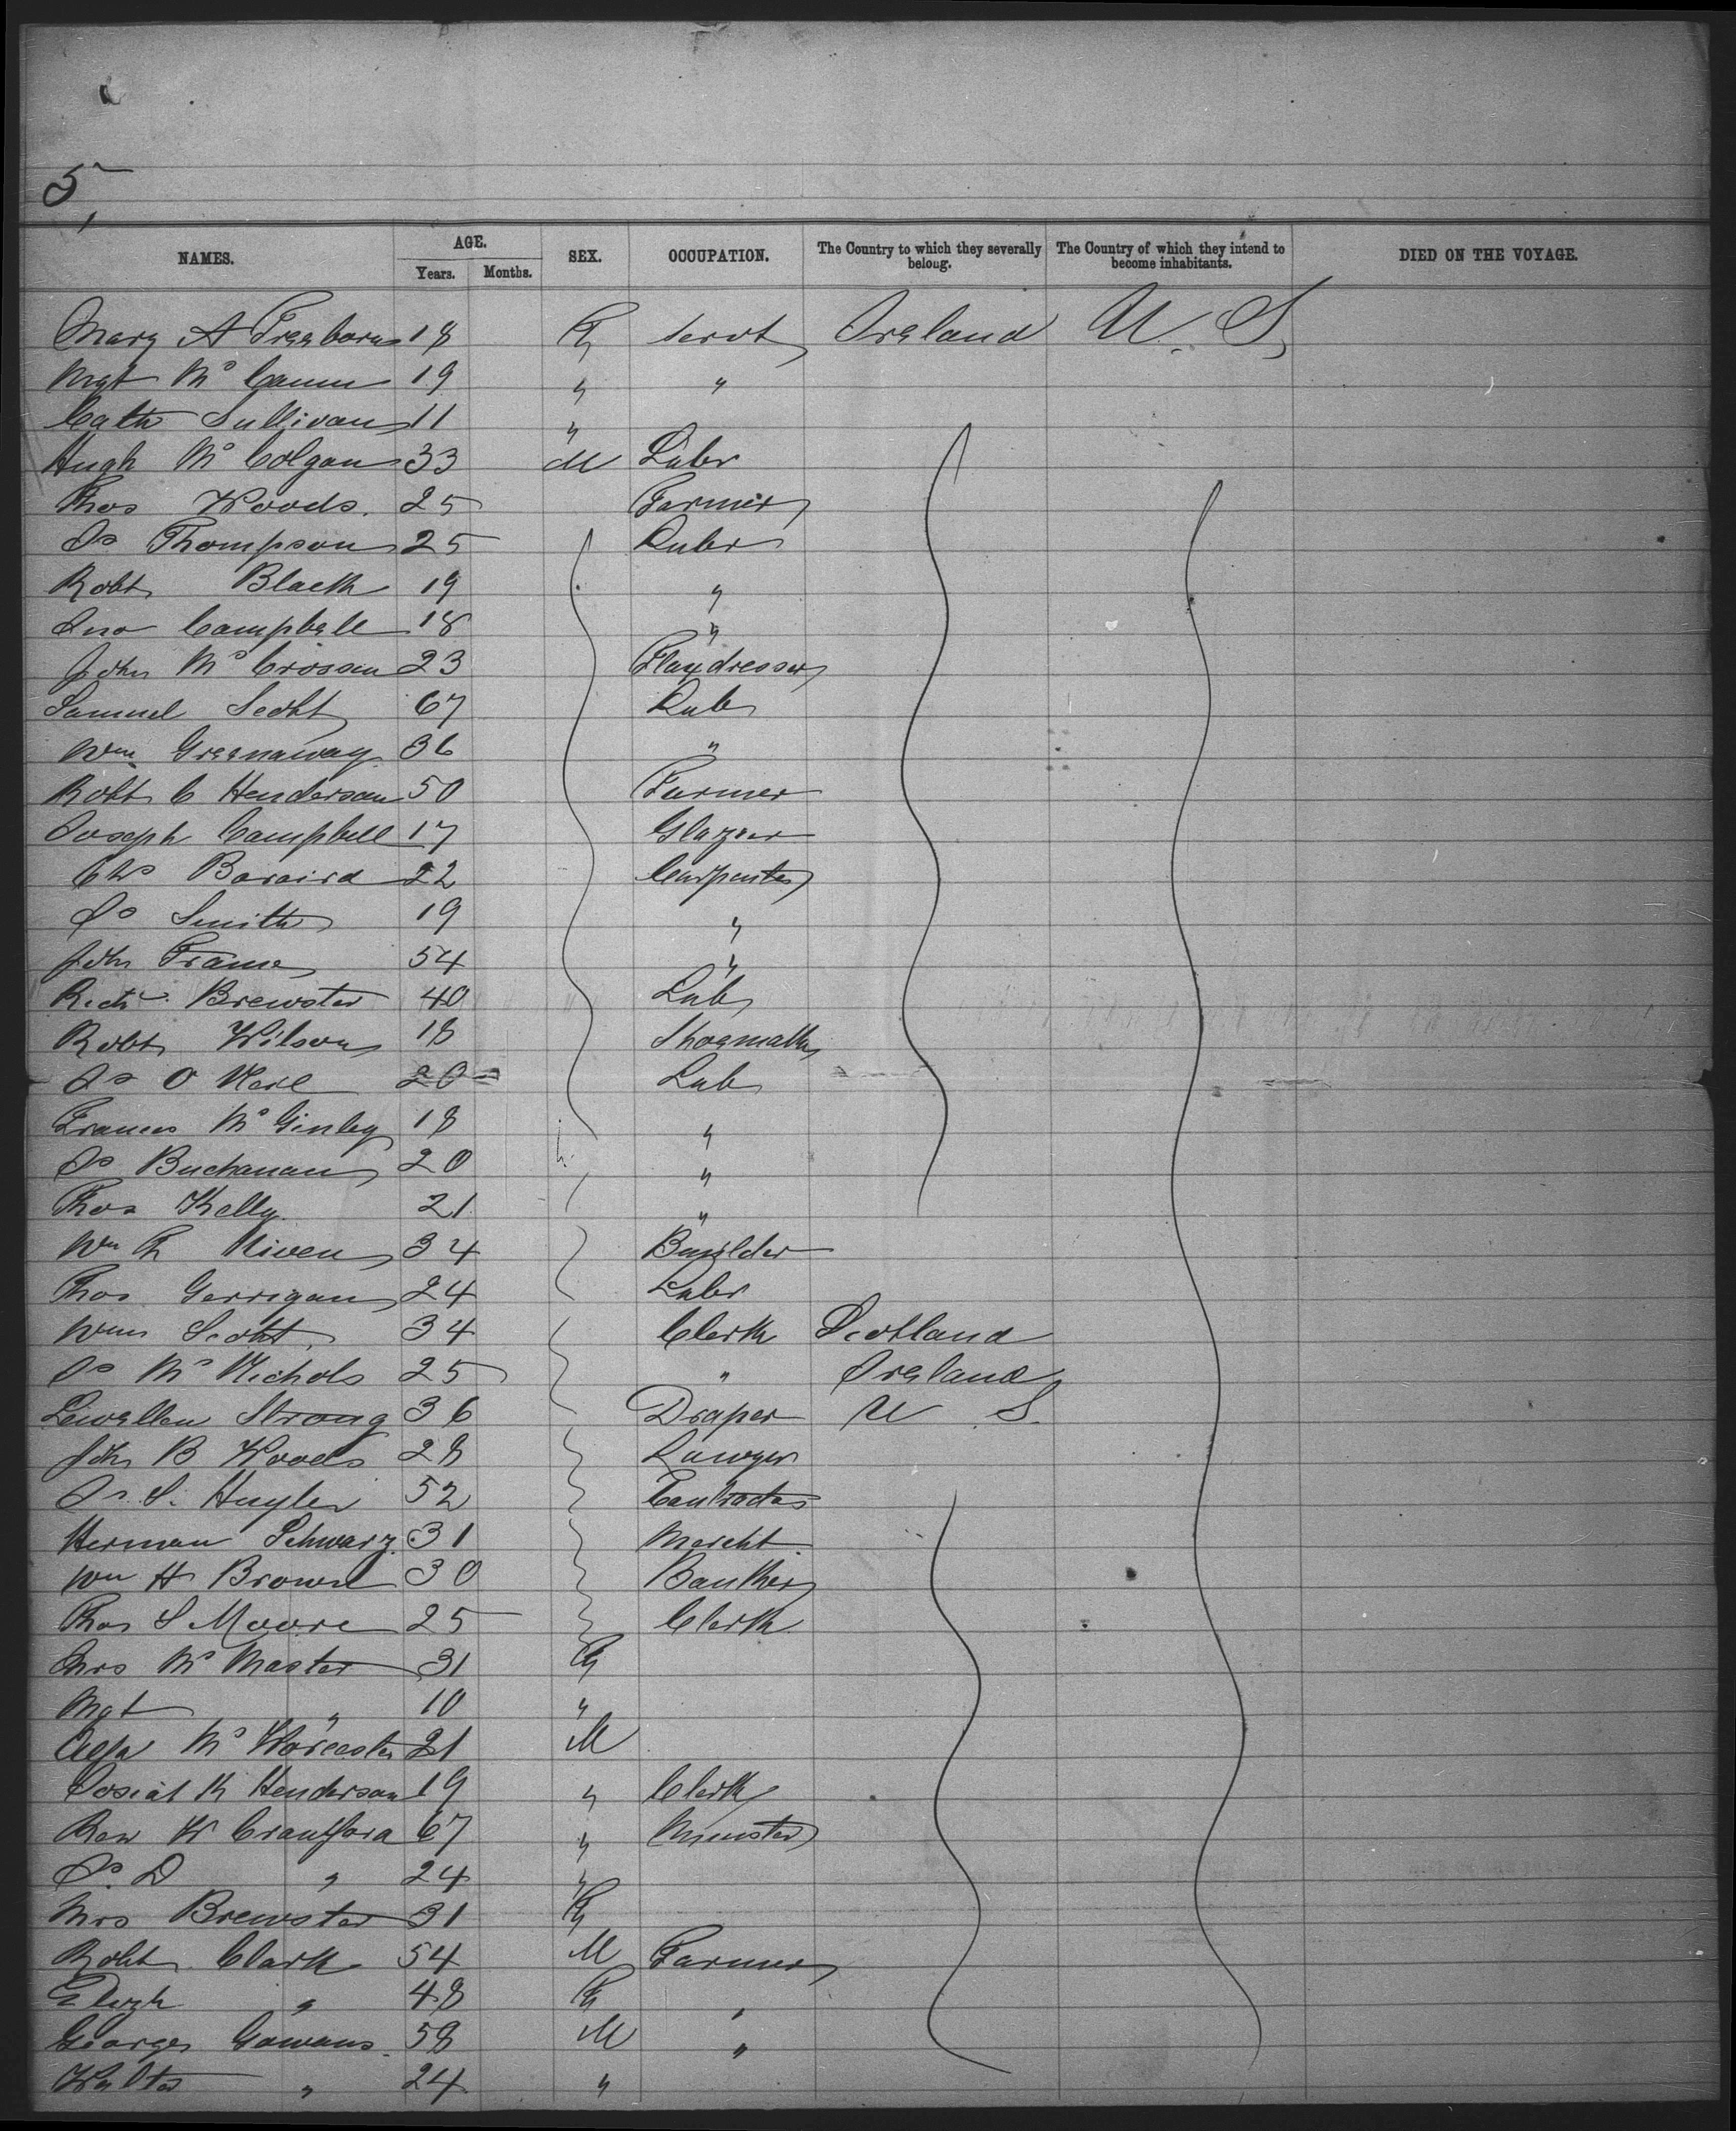 5,
NAMES. AGE. Years. Months. SEX. OCCUPATION. The Country to which they severally belong. The Country of which they intend to become inhabitants. DIED ON THE VOYAGE.
Mary A Freeborn 18 F Servt Ireland U. S.
Mgt Mc Cann 19 " "
Cath Sullivan 11 "
Hugh Mc Colgan 33 M Labr
Thos Woods. 25 Farmer
Js Thompson 25 Labr
Robt Black 19 "
Jno Campbell 18 "
John Mc Crossan 23 Flaxdresser
Samuel Scott 67 Lab
Wm Greenaway 36 "
Robt C Henderson 50 Farmer
Joseph Campbell 17 Glazier
Chs 22 Carpenter
Js Smith 19 "
John Frame 54 "
Richd Brewster 40 Lab
Robt Wilson 18 Shoemaker
Js O Neil 20 Lab
Frances Mc Ginley 18 "
Js Buchanan 20 "
Thos Kelly 21 "
Wm Th Niven 34 Builder
Thos Gerrigan 24 Labr
Wm Scott 34 Clerk Scotland
Js Mc Nichols 25 " Ireland
Lewellen Strong 36 Draper U S.
John B Woods 28 Lawyer
Js. S. Huyler 52 Contractor
Herman Schwarz 31 Mercht.
Wm H Brown 30 Banker
Thos S Moore 25 Clerk
Mrs Mc Master 31 F
Mgt " 10 "
Mc Worcester 21 M
Josiah K Henderson 19 " Clerk
Rev W Crawford 67 " Minister
Js. D " 24 "
Mrs Brewster 31 F
Robt Clark 54 M Farmer
Elizh " 48 F "
George Gowans 58 M "
Walter " 24 "